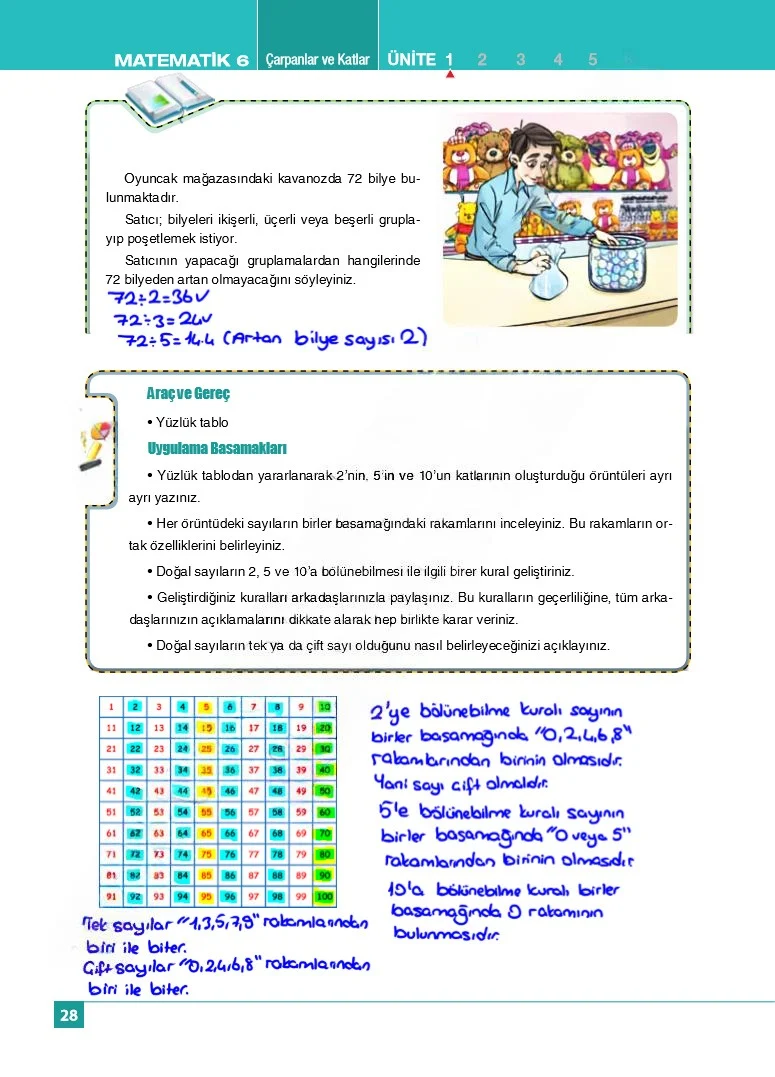 MATEMATİK 6 Çarpanlar ve Katlar ÜNİTE 1 2 3 4 5
Oyuncak mağazasındaki kavanozda 72 bilye bu-
lunmaktadır.
Satıcı; bilyeleri ikişerli, üçerli veya beşerli grupla-
yıp poşetlemek istiyor.
Satıcının yapacağı gruplamalardan hangilerinde
72 bilyeden artan olmayacağını söyleyiniz.
72÷2=36✓
72÷3=24✓
72÷5=14.4 (Artan bilye sayısı 2)
Araç ve Gereç
• Yüzlük tablo
Uygulama Basamakları
• Yüzlük tablodan yararlanarak 2'nin, 5'in ve 10'un katlarının oluşturduğu örüntüleri ayrı
ayrı yazınız.
• Her örüntüdeki sayıların birler basamağındaki rakamlarını inceleyiniz. Bu rakamların or-
tak özelliklerini belirleyiniz.
• Doğal sayıların 2, 5 ve 10'a bölünebilmesi ile ilgili birer kural geliştiriniz.
• Geliştirdiğiniz kuralları arkadaşlarınızla paylaşınız. Bu kuralların geçerliliğine, tüm arka-
daşlarınızın açıklamalarını dikkate alarak hep birlikte karar veriniz.
• Doğal sayıların tek ya da çift sayı olduğunu nasıl belirleyeceğinizi açıklayınız.
1 2 3 4 5 6 7 8 9 10
11 12 13 14 15 16 17 18 19 20
21 22 23 24 25 26 27 28 29 30
31 32 33 34 35 36 37 38 39 40
41 42 43 44 45 46 47 48 49 50
51 52 53 54 55 56 57 58 59 60
61 62 63 64 65 66 67 68 69 70
71 72 73 74 75 76 77 78 79 80
81 82 83 84 85 86 87 88 89 90
91 92 93 94 95 96 97 98 99 100
2'ye bölünebilme kuralı sayının
birler basamağında "0,2,4,6,8"
rakamlarından birinin olmasıdır.
Yani sayı çift olmalıdır.
5'e bölünebilme kuralı sayının
birler basamağında "0 veya 5"
rakamlarından birinin olmasıdır
10'a bölünebilme kuralı birler
basamağında 0 rakamının
bulunmasıdır.
Tek sayılar "1,3,5,7,9" rakamlarından
biri ile biter.
Çift sayılar "0,2,4,6,8" rakamlarından
biri ile biter.
28